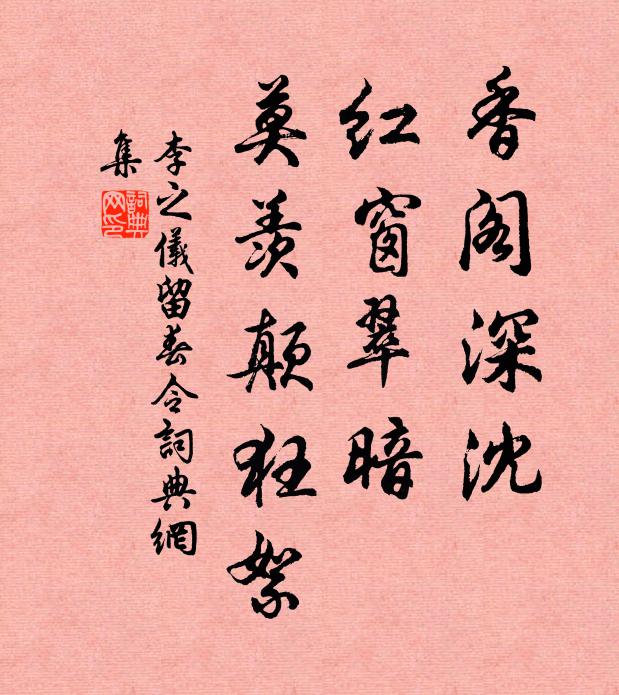 香阁深沈
红窗翠暗
莫羡颠狂絮
李之儀留春令詞典網
集
詞典网印